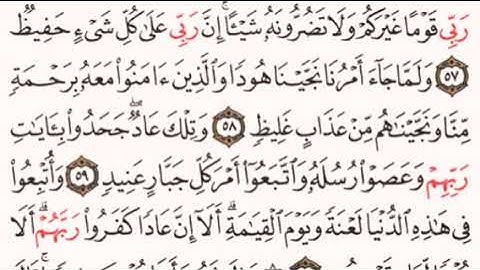 رَبِّى قَوْمًا غَيْرَكُمْ وَلَا تَضُرُّونَهُۥ شَيْـًٔا ۚ إِنَّ رَبِّى عَلَىٰ كُلِّ شَىْءٍ حَفِيظٌ
٥٧ وَلَمَّا جَآءَ أَمْرُنَا نَجَّيْنَا هُودًا وَٱلَّذِينَ ءَامَنُوا۟ مَعَهُۥ بِرَحْمَةٍ
مِّنَّا وَنَجَّيْنَٰهُم مِّنْ عَذَابٍ غَلِيظٍ ٥٨ وَتِلْكَ عَادٌ ۖ جَحَدُوا۟ بِـَٔايَٰتِ
رَبِّهِمْ وَعَصَوْا۟ رُسُلَهُۥ وَٱتَّبَعُوٓا۟ أَمْرَ كُلِّ جَبَّارٍ عَنِيدٍ ٥٩ وَأُتْبِعُوا۟
فِى هَٰذِهِ ٱلدُّنْيَا لَعْنَةً وَيَوْمَ ٱلْقِيَٰمَةِ ۗ أَلَآ إِنَّ عَادًا كَفَرُوا۟ رَبَّهُمْ ۗ أَلَا